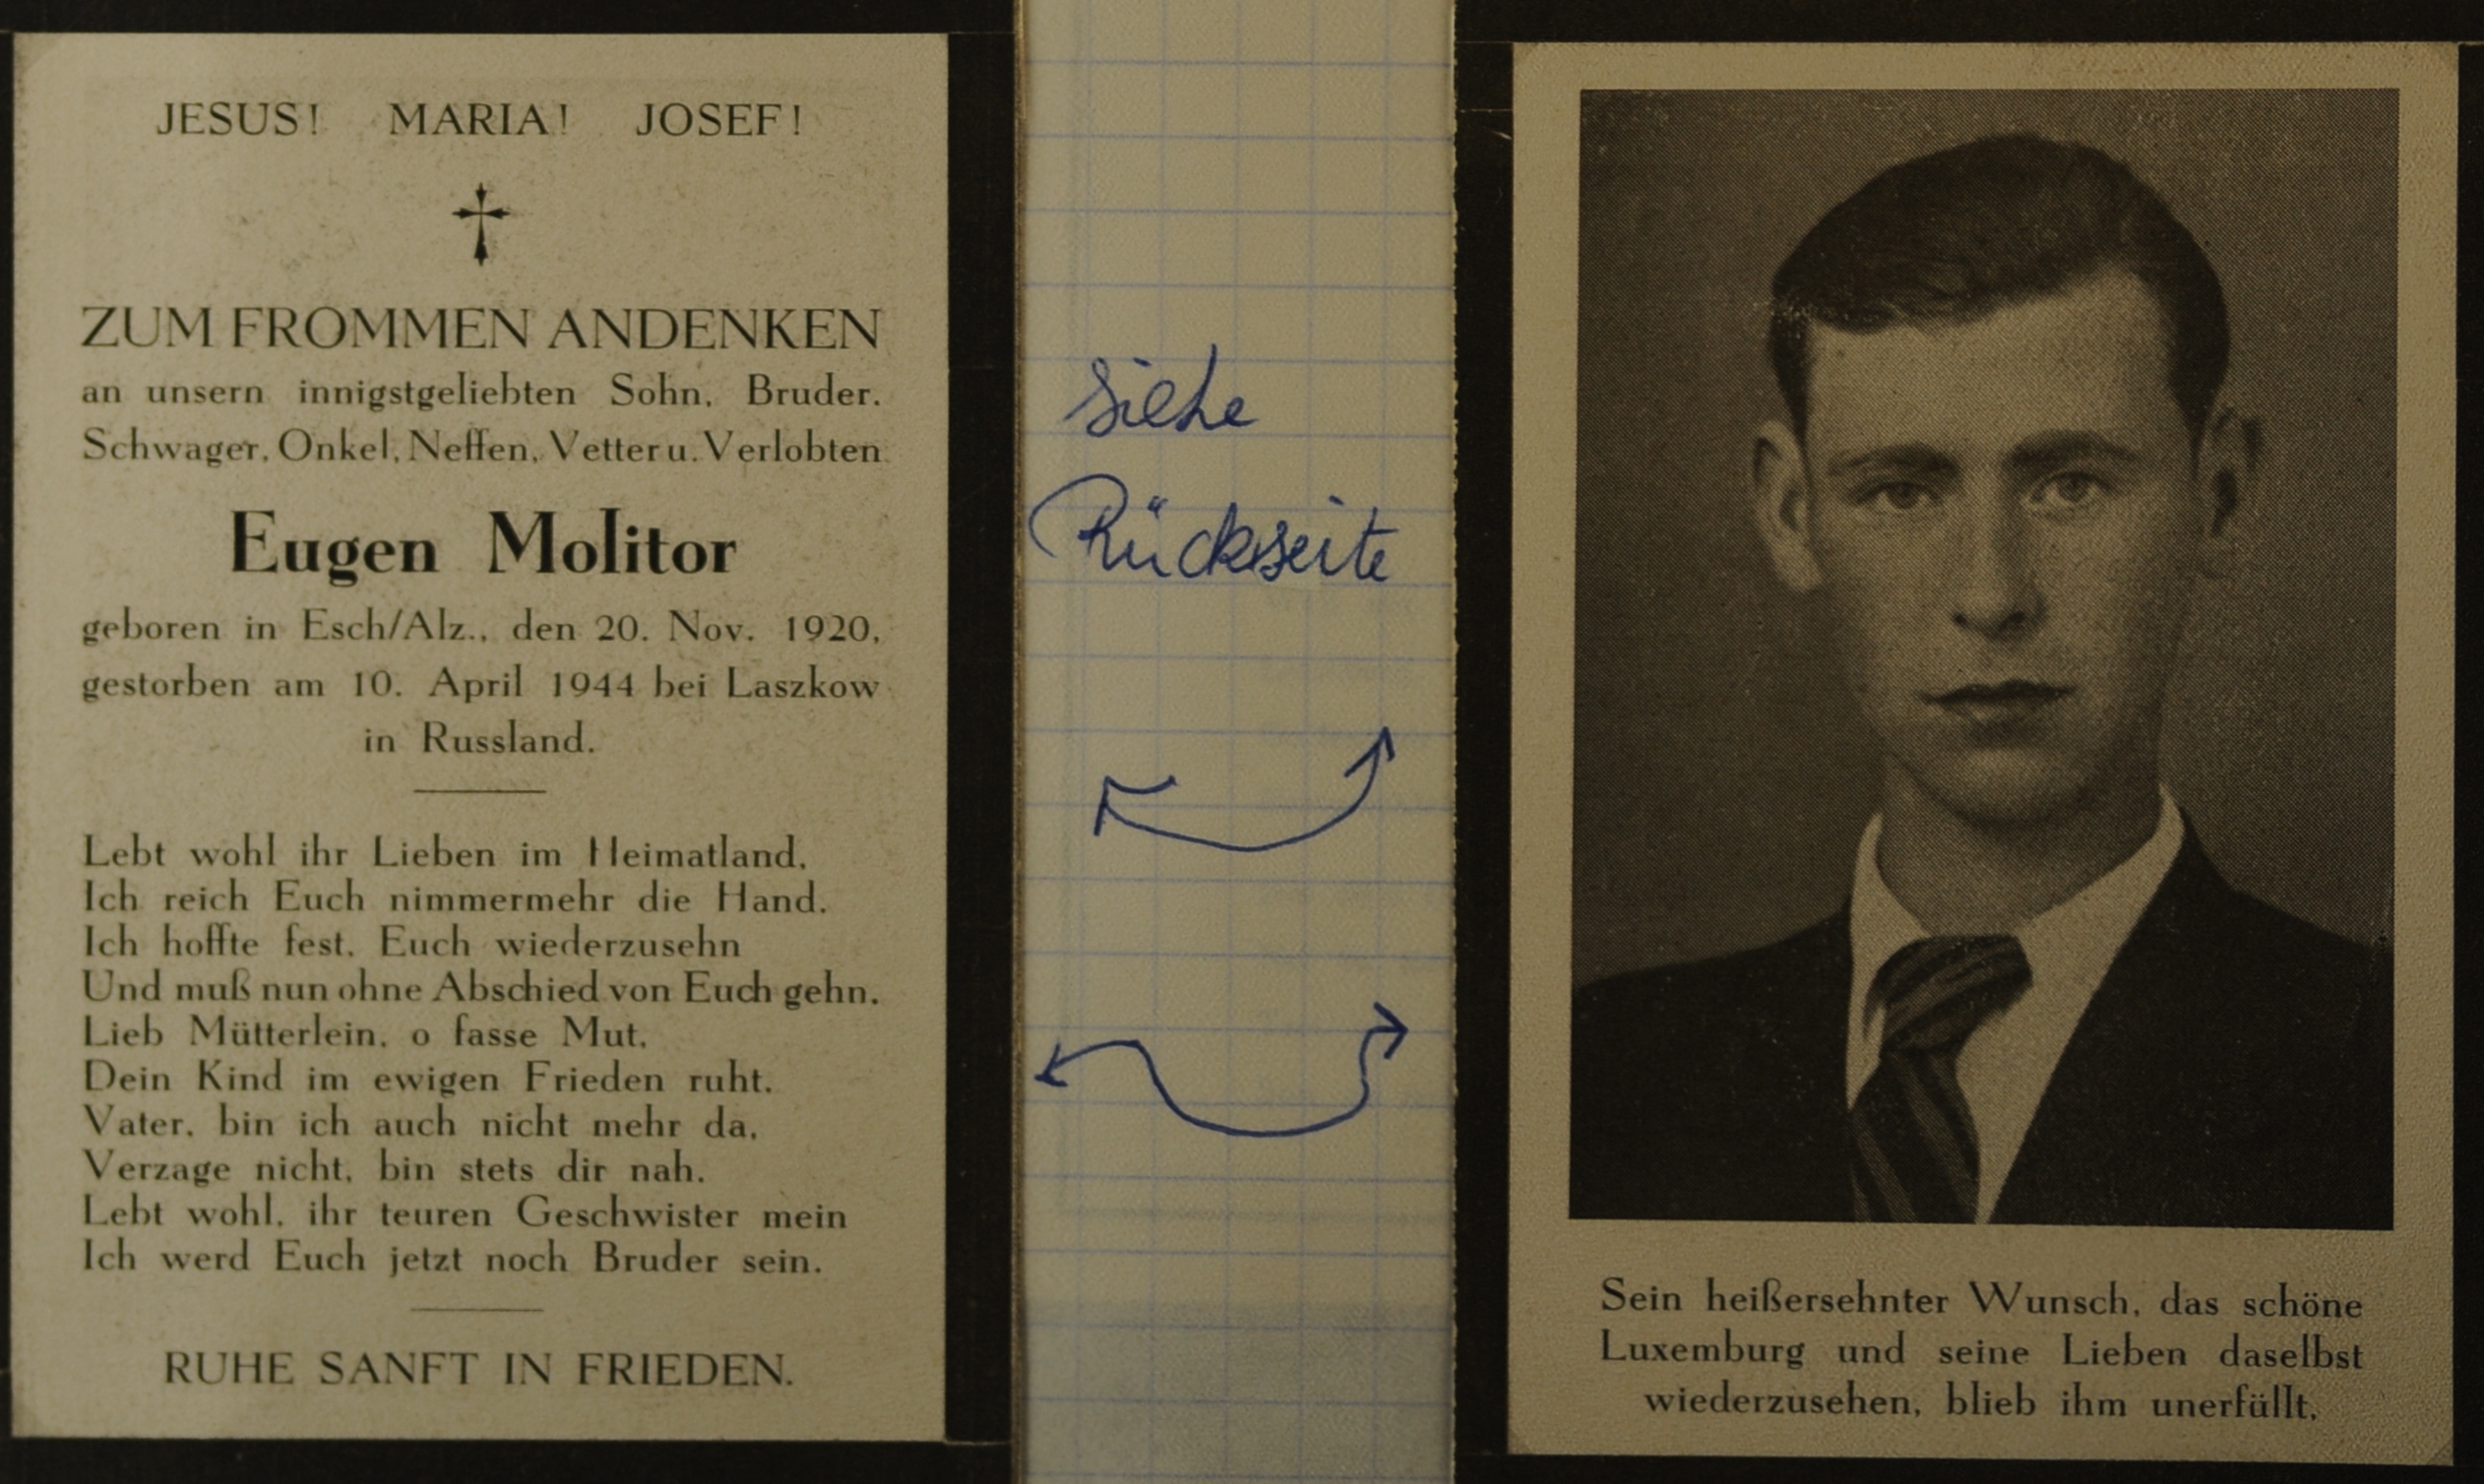 JESUS! MARIA! JOSEF!
ZUM FROMMEN ANDENKEN
an unsern innigstgeliebten Sohn, Bruder,
Schwager, Onkel, Neffen, Vetter u. Verlobten
Eugen Molitor
geboren in Esch/Alz., den 20. Nov. 1920,
gestorben am 10. April 1944 bei Laszkow
in Russland.
Lebt wohl ihr Lieben im Heimatland,
Ich reich Euch nimmermehr die Hand.
Ich hoffte fest, Euch wiederzusehn
Und muß nun ohne Abschied von Euch gehn.
Lieb Mütterlein, o fasse Mut,
Dein Kind im ewigen Frieden ruht.
Vater, bin ich auch nicht mehr da,
Verzage nicht, bin stets dir nah.
Lebt wohl, ihr teuren Geschwister mein
Ich werd Euch jetzt noch Bruder sein.
RUHE SANFT IN FRIEDEN.
siehe
Rückseite
Sein heißersehnter Wunsch, das schöne
Luxemburg und seine Lieben daselbst
wiederzusehen, blieb ihm unerfüllt.